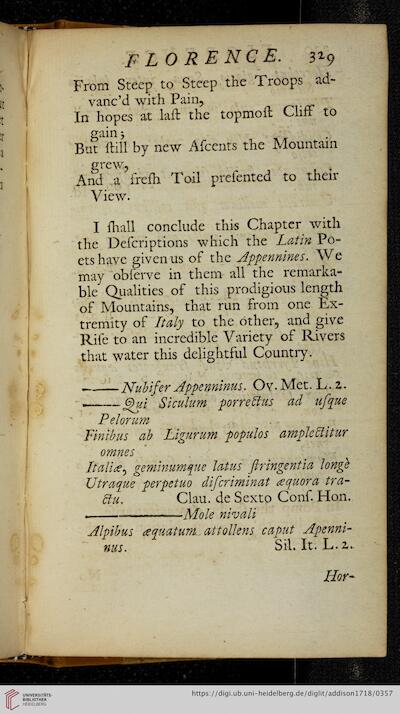 FLORENCE. 329
From Steep to Steep the Troops ad-
vanc'd with Pain,
In hopes at laſt the topmoſt Cliff to
gain;
But ſtill by new Aſcents the Mountain
grew,
And a freſh Toil preſented to their
View.
I ſhall conclude this Chapter with
the Deſcriptions which the Latin Po-
ets have given us of the Appennines. We
may obſerve in them all the remarka-
ble Qualities of this prodigious length
of Mountains, that run from one Ex-
tremity of Italy to the other, and give
Riſe to an incredible Variety of Rivers
that water this delightful Country.
——Nubifer Appenninus. Ov. Met. L. 2.
——Qui Siculum porrectus ad uſque
Pelorum
Finibus ab Ligurum populos amplectitur
omnes
Italiæ, geminumque latus ſtringentia longè
Utraque perpetuo diſcriminat æquora tra-
ctu. Clau. de Sexto Conſ. Hon.
————Mole nivali
Alpibus æquatum attollens caput Apenni-
nus. Sil. It. L. 2.
Hor-
UNIVERSITÄTS-
BIBLIOTHEK
HEIDELBERG
https://digi.ub.uni-heidelberg.de/diglit/addison1718/0357